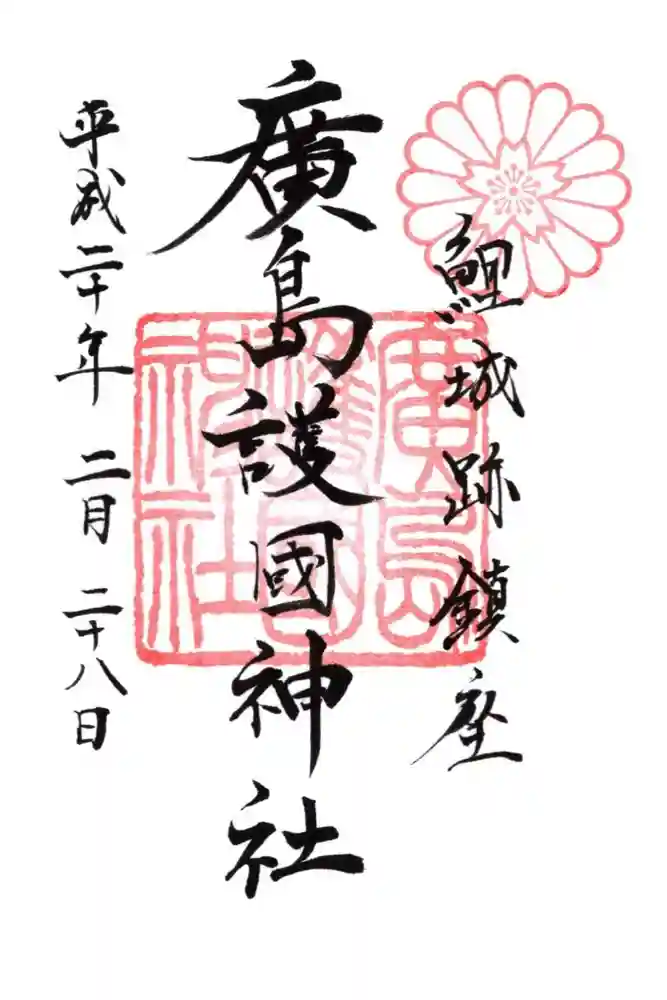 鯉城跡鎮座
廣島護國神社
廣島護國神社
平成二十年 二月 二十八日